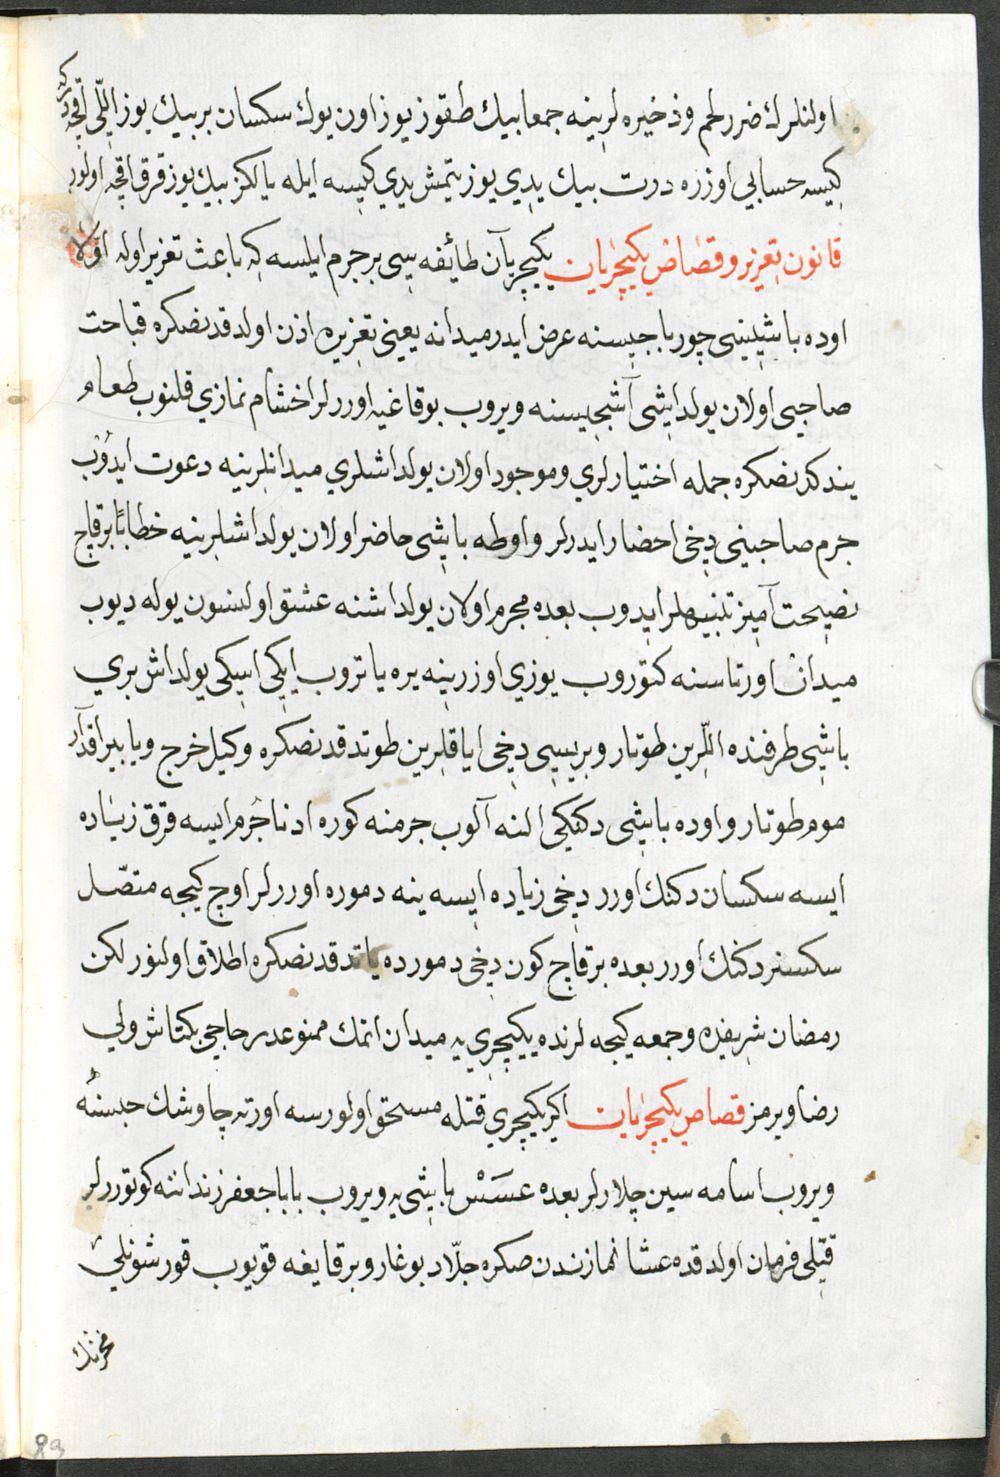 اولنلرك ضرر لحم و ذخیره لرینه جمعا بیك طقوز یوز اون یوك سكسان بر بیك یوز اللّی اقچه در كه
كیسه حسابی اوزره درت بیك یدی یوز یتمش یدی كیسه ایله یالكز بیك یوز قرق اقچه اولور
قانون تعزیر و قصاص یكیچریان یكیچریان طائفه سی بر جرم ایلسه كه باعث تعزیر اوله اوّلا
اوده باشیسی چورباجیسنه عرض ایدر میدانه یعنی تعزیره اذن اولدقدنصكره قباحت
صاحبی اولان یولداشی آشجیسنه ویروب بوقاغیه اوررلر اخشام نمازی قلنوب طعام
یندكدنصكره جمله اختیارلری و موجود اولان یولداشلری میدانلرینه دعوت ایدوب
جرم صاحبنی دخی احضار ایدرلر و اوطه باشی حاضر اولان یولداشلرینه خطابًا بر قاچ
نصیحت آمیز تنبیهلر ایدوب بعده مجرم اولان یولداشنه عشق اولسون یوله دیوب
میدان اورتاسنه كتوروب یوزی اوزرینه یره یاتروب ایكی اسكی یولداش بری
باشی طرفنده اللّرین طوتار و بریسی دخی ایاقلرین طوتدقدنصكره وكیل خرج ویا بیراقدار
موم طوتار و اوده باشی دكنكی النه آلوب جرمنه كوره ادنا جرم ایسه قرق زیاده
ایسه سكسان دكنك اورر دخی زیاده ایسه ینه دموره اوررلر اوچ كیجه متصل
سكسنر دكنك اورر بعده بر قاچ كون دخی دمورده یاتدقدنصكره اطلاق اولنور لكن
رمضان شریفده و جمعه كیجه لرنده یكیچری یه میدان اتمك ممنوعدر حاجی بكتاش ولی
رضا ویرمز قصاص یكیچریان اكر یكیچری قتله مستحق اولورسه اورته چاوشك حبسنه
ویروب اسامه سین چلارلر بعده عسس باشی یه ویروب بابا جعفر زنداننه كوتوررلر
قتلی فرمان اولدقده عشا نمازندن صكره جلّاد بوغار و بر قایغه قویوب قورشونلی
مخزنك
89